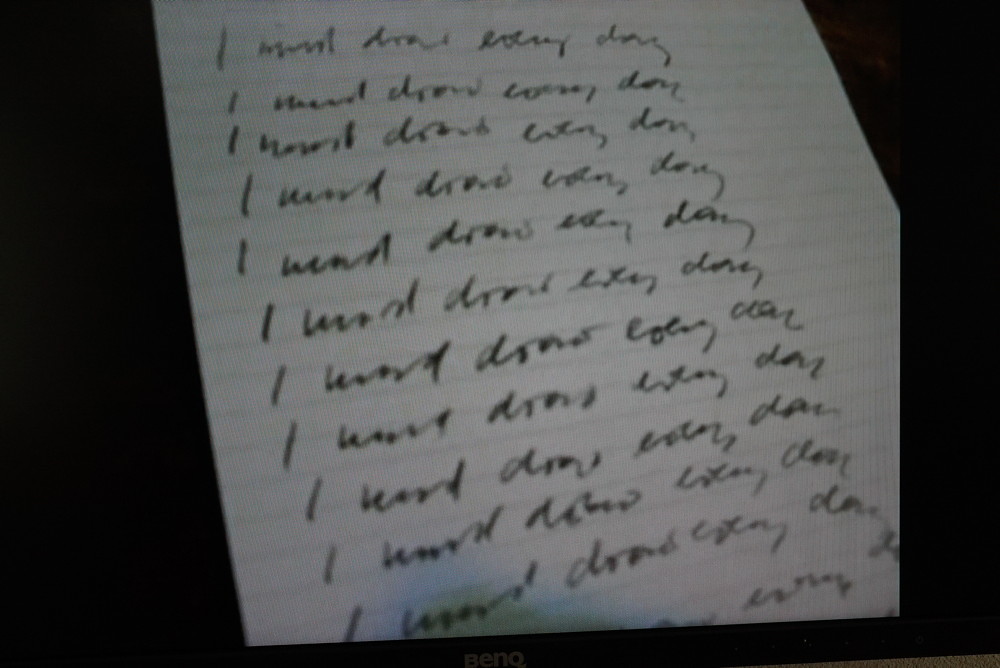 I must draw every day
I must draw every day
I must draw every day
I must draw every day
I must draw every day
I must draw every day
I must draw every day
I must draw every day
I must draw every day
I must draw every day
I must draw every day
every
BenQ